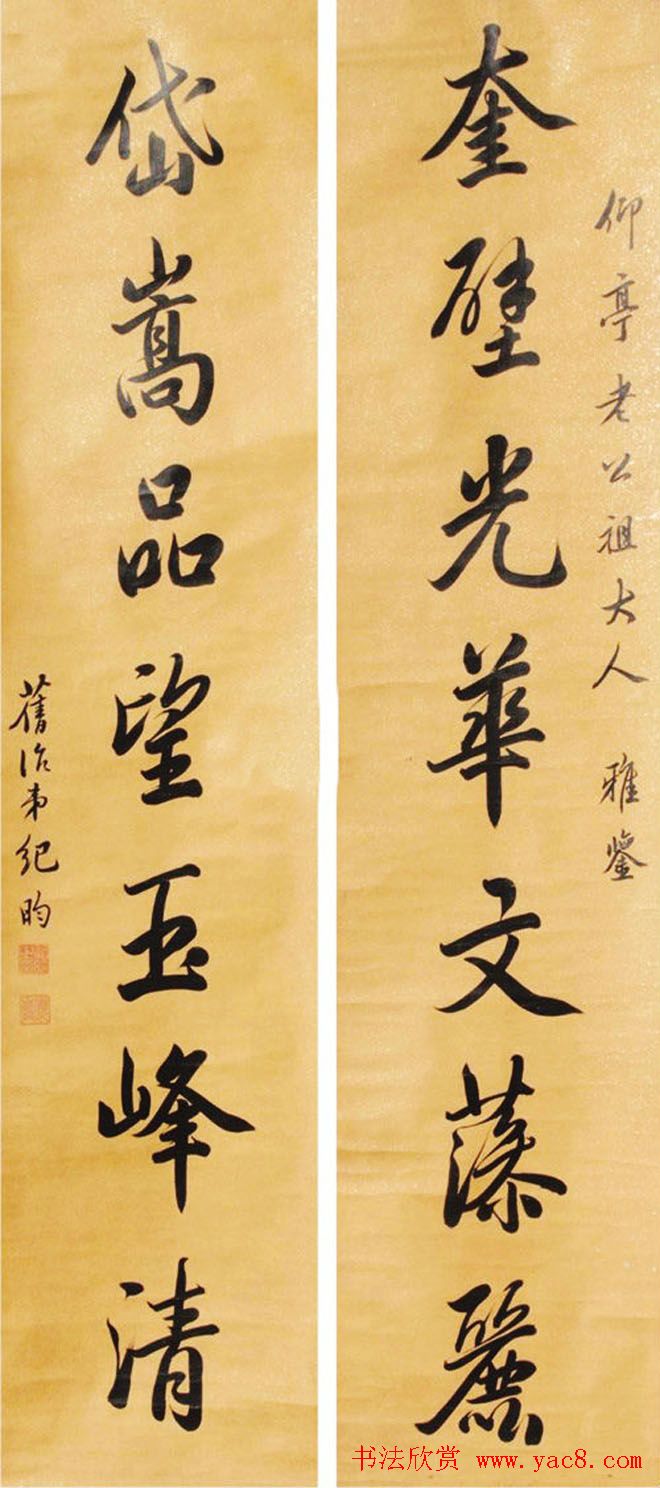 仰亭老公祖大人 雅鑒
奎壁光華文藻麗
岱嵩品望玉峰清
舊治弟紀昀
书法欣赏 www.yac8.com